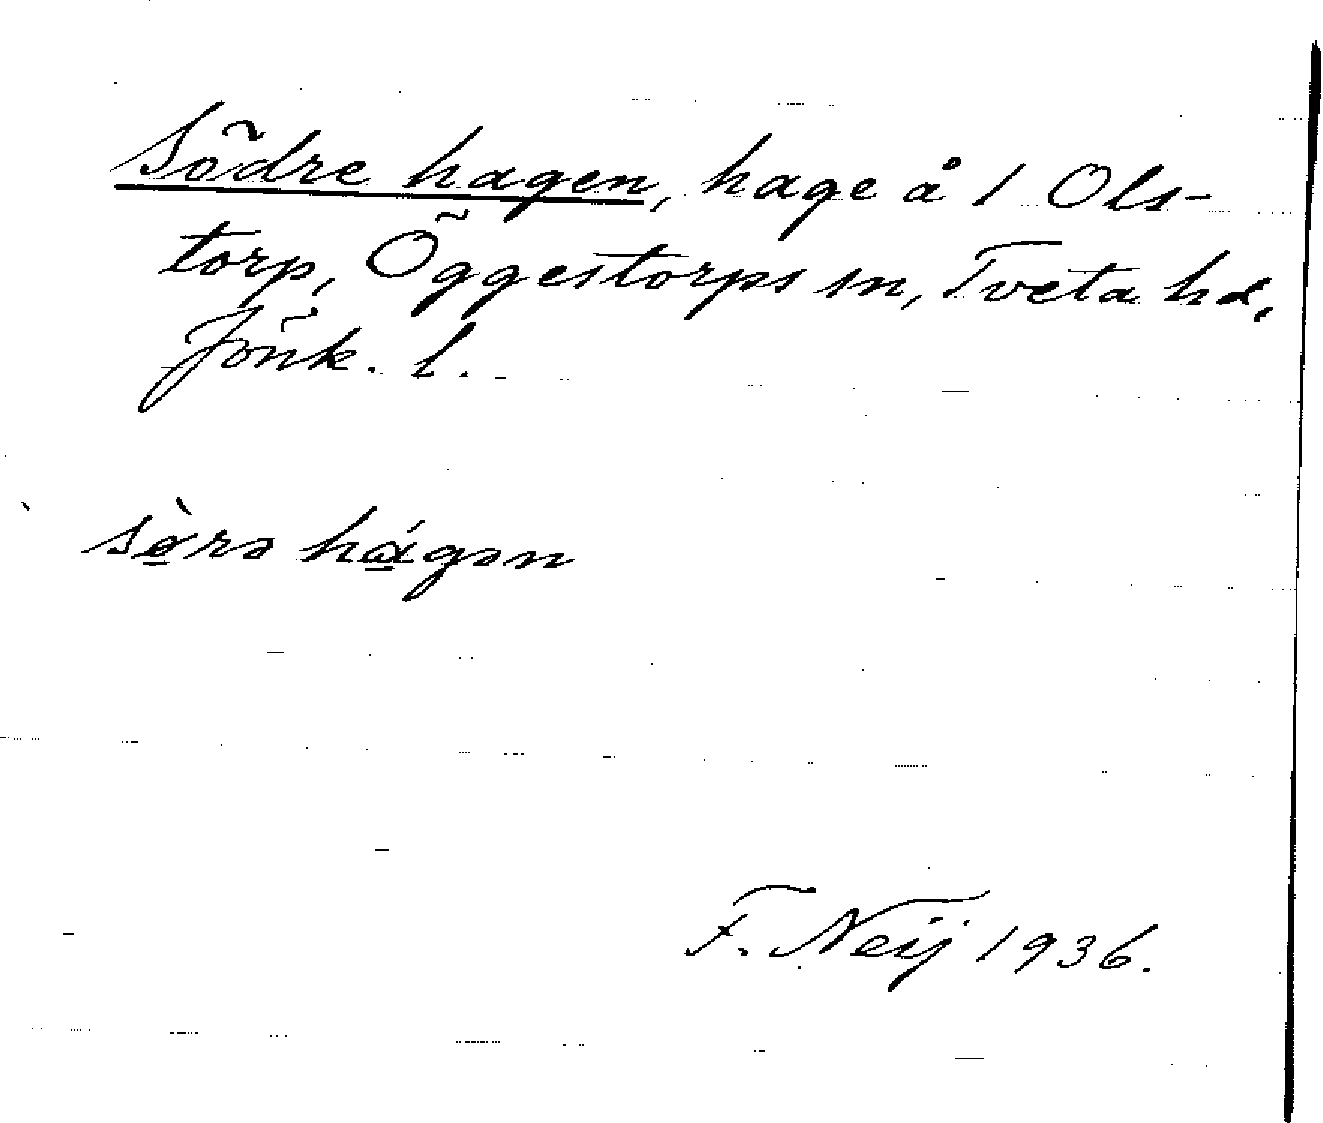 Södre hagen, hage å 1 Ols-
torp, Öggestorps sn, Tveta hd,
Jönk. l.
sø̠̀rə hɑ̠́gən
F. Neij 1936.